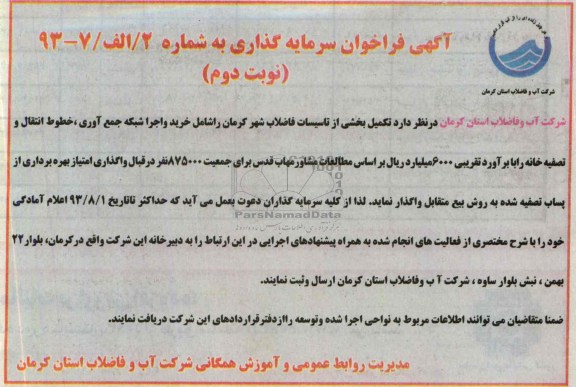 هر چیز زنده ای را از آب قرار دادیم
شرکت آب و فاضلاب استان کرمان
آگهی فراخوان سرمایه گذاری به شماره ۱/۲الف/۷-۹۳
(نوبت دوم)
شرکت آب وفاضلاب استان کرمان درنظر دارد تکمیل بخشی از تاسیسات فاضلاب شهر کرمان راشامل خرید واجرا شبکه جمع آوری ،خطوط انتقال و
تصفیه خانه رابا برآورد تقریبی ۶۰۰۰میلیارد ریال بر اساس مطالعات مشاورمهاب قدس برای جمعیت ۸۷۵۰۰۰نفر درقبال واگذاری امتیاز بهره برداری از
پساب تصفیه شده به روش بیع متقابل واگذار نماید. لذا از کلیه سرمایه گذاران دعوت بعمل می آید که حداکثر تاتاریخ ۹۳/۸/۱ اعلام آمادگی
ParsNamadData
خود را با شرح مختصری از فعالیت های انجام شده به همراه پیشنهادهای اجرایی در این ارتباط را به دبیرخانه این شرکت واقع درکرمان، بلوار۲۲
بهمن ، نبش بلوار ساوه ، شرکت آ ب وفاضلاب استان کرمان ارسال وثبت نمایند.
ضمنا متقاضیان می توانند اطلاعات مربوط به نواحی اجرا شده وتوسعه رااز‌دفترقراردادهای این شرکت دریافت نمایند.
مدیریت روابط عمومی و آموزش همگانی شرکت آب و فاضلاب استان کرمان